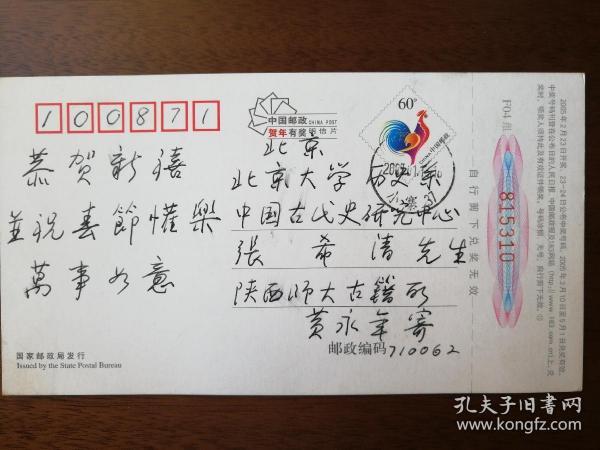 100871
恭贺新禧
並祝春節懽樂
萬事如意
国家邮政局发行
Issued by the State Postal Bureau
中国邮政 CHINA POST
贺年有奖明信片
60分
中国邮政 CHINA
北京
北京大学历史系
中国古代史研究中心
張希清先生
陕西师大古籍所
黄永年寄
邮政编码 710062
自行剪下兑奖无效
F04 组
815310
孔夫子旧书网
www.kongfz.com